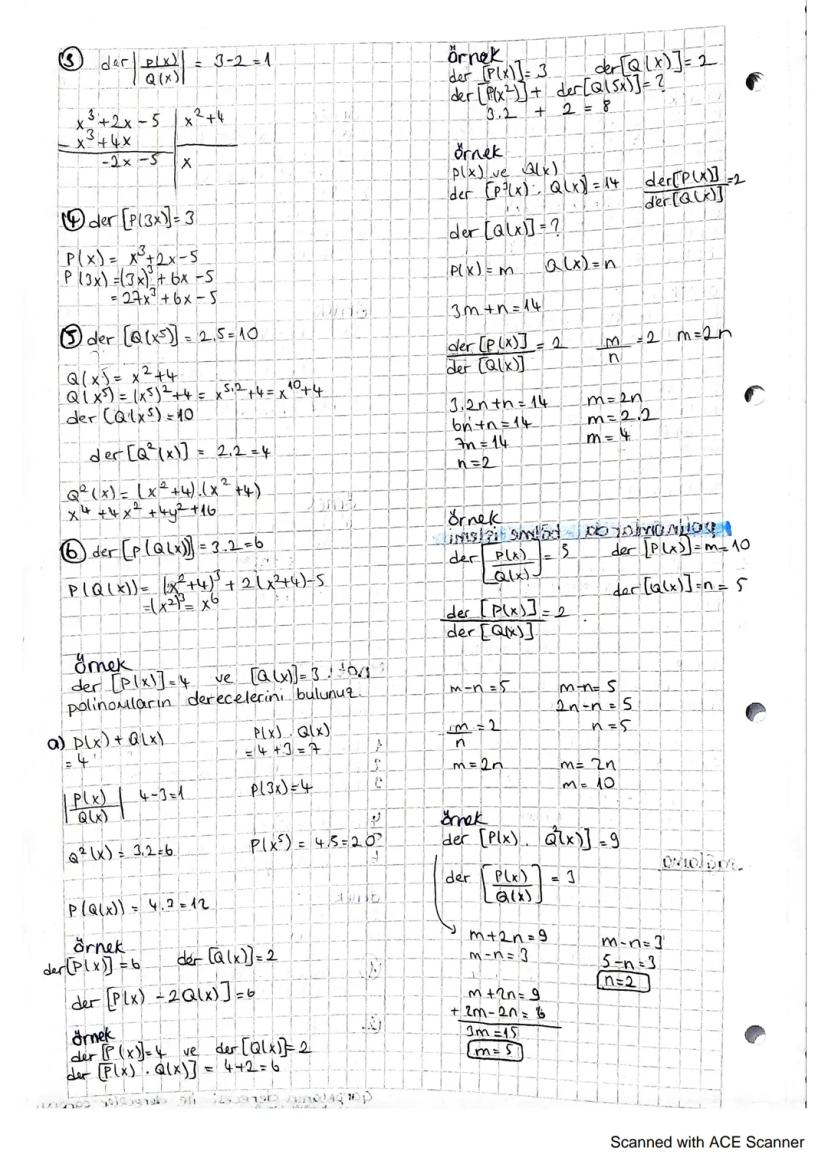 ③ der |P(x)/Q(x)| = 3-2=1
x³+2x-5 | x²+4
- x³+4x
-2x-5 | x
④ der [P(3x)]=3
P(x) = x³+2x-5
P(3x)=(3x)³+6x-5
= 27x³+6x-5
⑤ der [Q(x⁵)] = 2.5=10
Q(x)= x²+4
Q(x⁵)= (x⁵)²+4= x^5.2+4= x¹⁰+4
der (Q(x⁵)=10
der [Q²(x)] = 2.2=4
Q²(x) = (x²+4).(x²+4)
x⁴+4x²+4y²+16
⑥ der [P(Q(x)]=3.2=6
P(Q(x))= (x²+4)³+2(x²+4)-5
=(x²)³= x⁶
örnek
der [P(x)]=4 ve [Q(x)]=3
polinomların derecelerini bulunuz
a) P(x)+Q(x) P(x) . Q(x)
= 4 = 4+3=7
|P(x)/Q(x)| 4-3=1 P(3x)=4
Q²(x) = 3.2=6 P(x⁵) = 4.5=20
P(Q(x)) = 4.3=12
örnek
der[P(x)] =6 der [Q(x)]=2
der [P(x) -2Q(x)]=6
örnek
der [P(x)]=4 ve der [Q(x)]=2
der [P(x) . Q(x)] = 4+2=6
örnek
der [P(x)]=3 der[Q(x)]=2
der [P(x²)]+ der[Q(5x)]=?
3.2 + 2 = 8
örnek
P(x) ve Q(x)
der [P³(x). Q(x)]=14 der[P(x)]/der[Q(x)]=2
der [Q(x)]=?
P(x)=m Q(x)=n
3m+n=14
der [P(x)]/der [Q(x)] = 2 m/n =2 m=2n
3.2n+n=14 m=2n
6n+n=14 m=2.2
7n=14 m=4
n=2
örnek
der [P(x)/Q(x)] = 5 der [P(x)]=m=10
der [Q(x)]=n=5
der [P(x)]/der [Q(x)] = 2
m-n=5 m-n=5
2n-n=5
m/n=2 n=5
m=2n m=2n
m=10
örnek
der [P(x). Q²(x)]=9
der [P(x)/Q(x)] = 3
m+2n=9 m-n=3
m-n=3 5-n=3
n=2
m+2n=9
+ 2m-2n=6
3m=15
m=5
Scanned with ACE Scanner